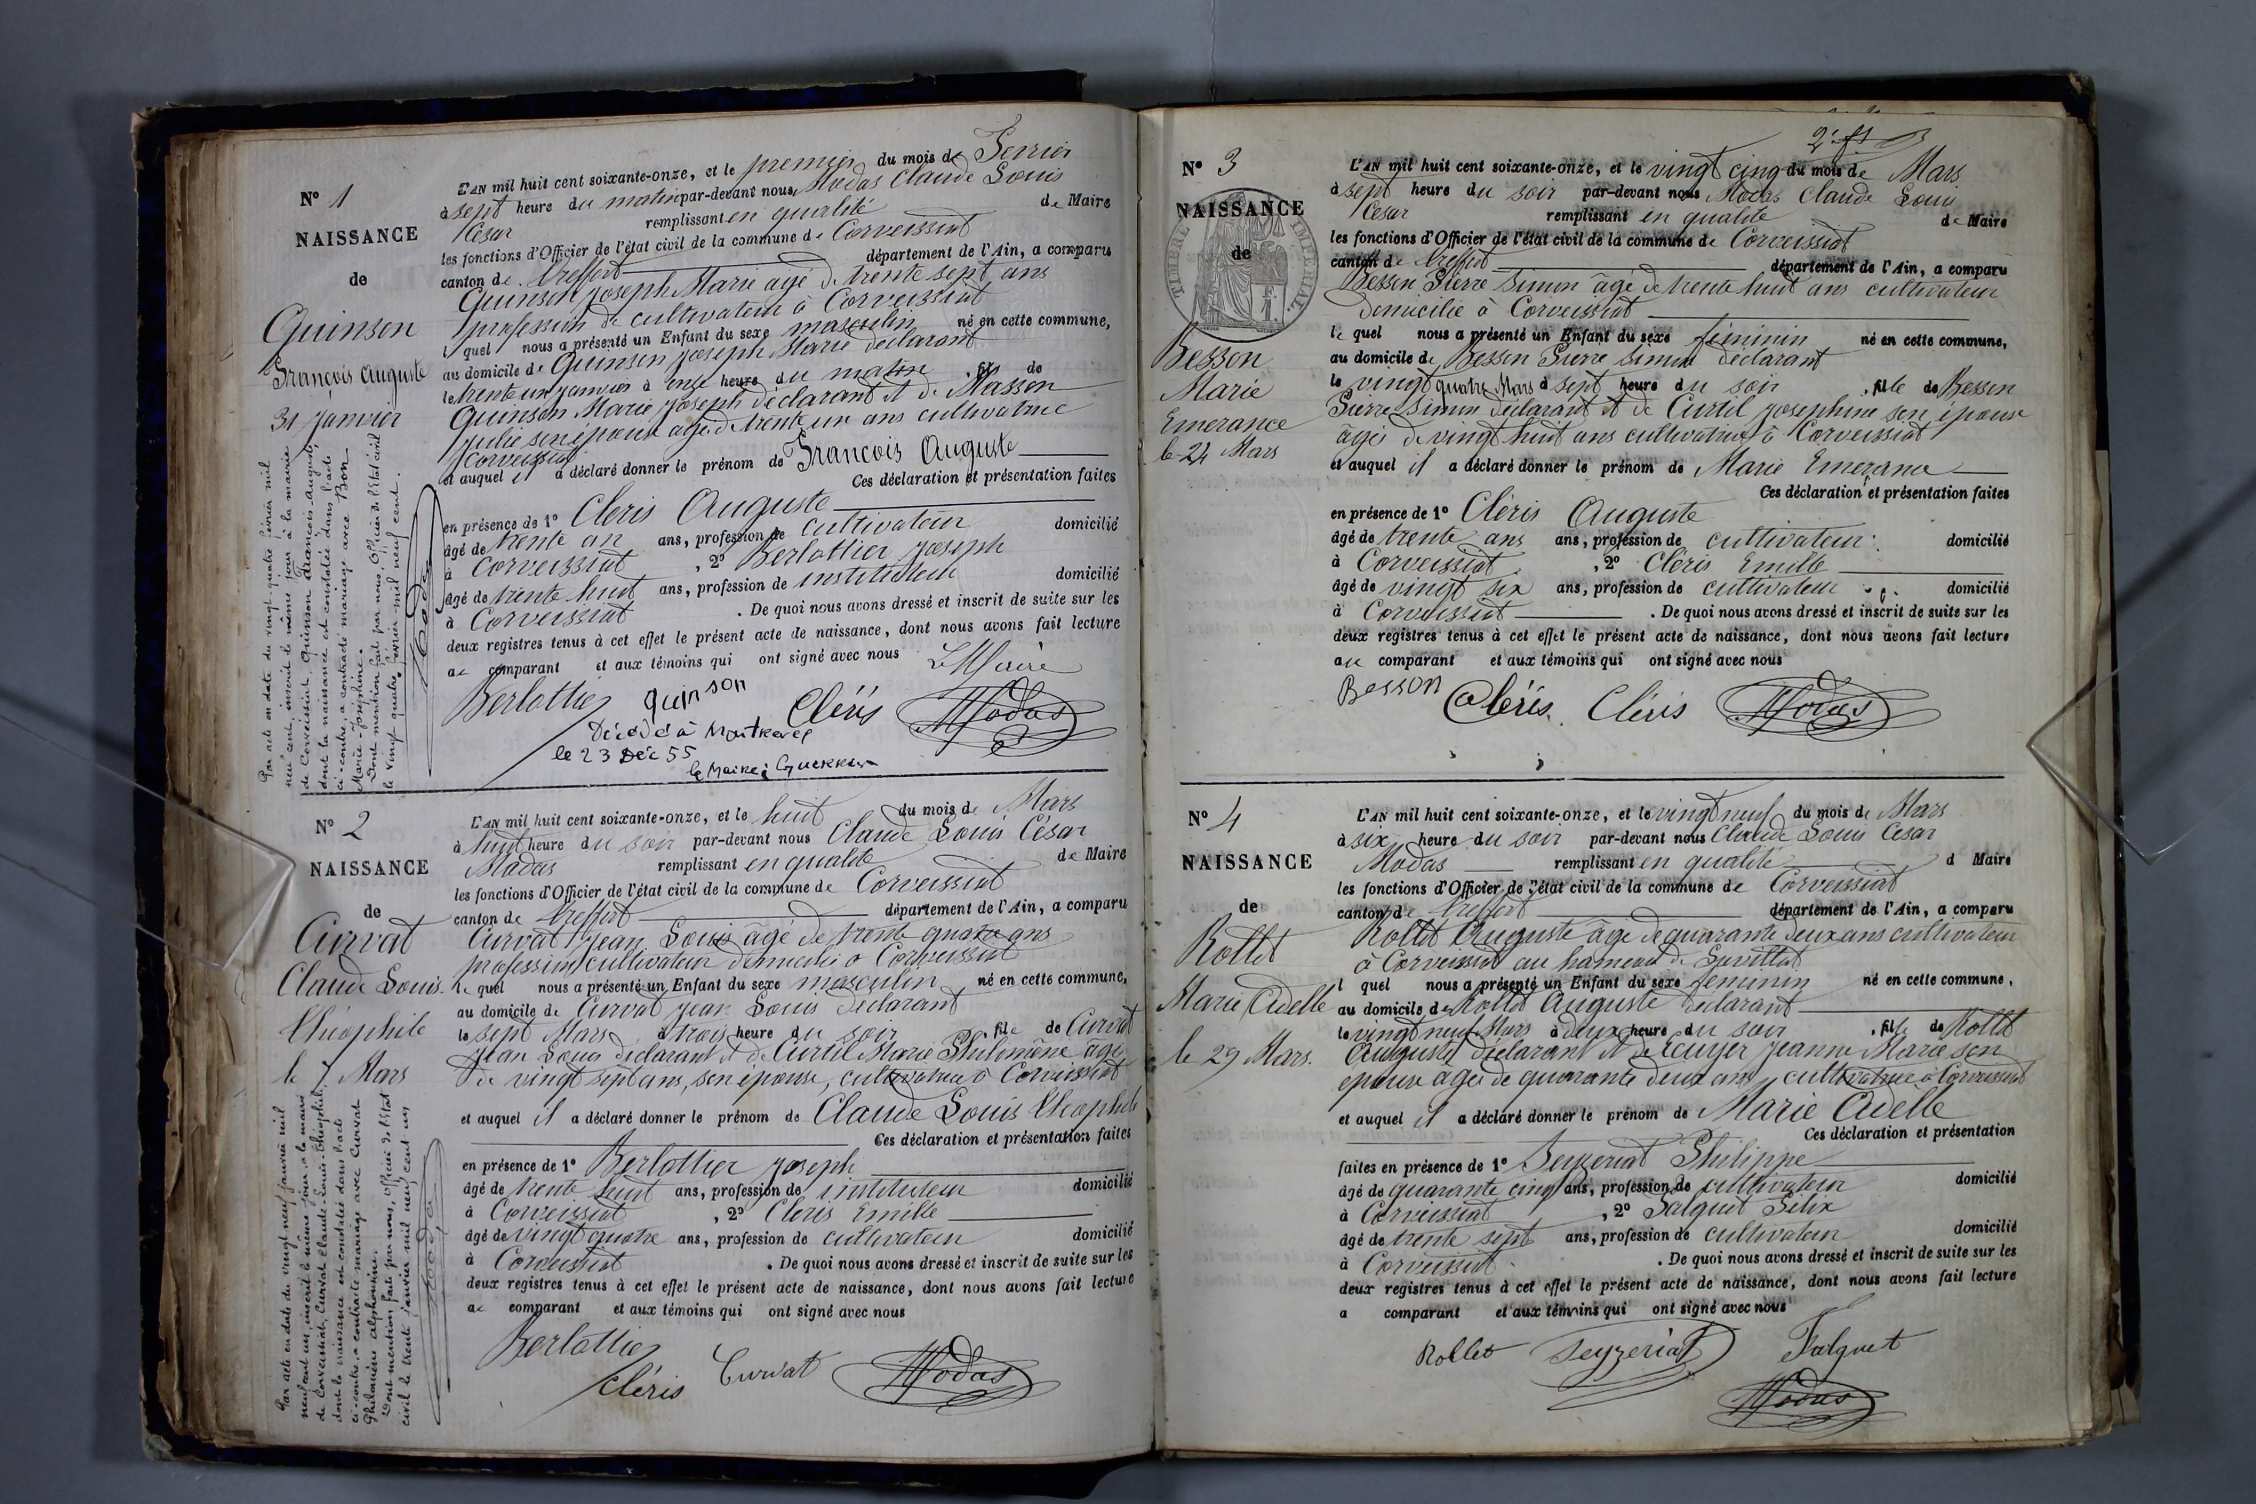 N° 1
NAISSANCE
de
Quinson
François Auguste
31 janvier
L'AN mil huit cent soixante-onze, et le premier du mois de Fevrier
à sept heure du matin par-devant nous, Modas Claude Louis
César remplissant en qualité de Maire
les fonctions d'Officier de l'état civil de la commune de Corveissiat
canton de Treffort département de l'Ain, a comparu
Quinson Joseph Marie agé de trente sept ans
profession de cultivateur à Corveissiat
lequel nous a présenté un Enfant du sexe masculin né en cette commune,
au domicile de Quinson Joseph Marie déclarant
le trente un janvier à onze heure du matin, fils de
Quinson Marie Joseph déclarant et de Masson
Julie son épouse agée de trente un ans cultivatrice
Corveissiat
et auquel il a déclaré donner le prénom de François Auguste
Ces déclaration et présentation faites
en présence de 1° Cléris Auguste
âgé de trente an ans, profession de cultivateur domicilié
à Corveissiat, 2° Berlottier Joseph
âgé de trente huit ans, profession de instituteur domicilié
à Corveissiat. De quoi nous avons dressé et inscrit de suite sur les
deux registres tenus à cet effet le présent acte de naissance, dont nous avons fait lecture
au comparant et aux témoins qui ont signé avec nous Le Maire
Berlottier quinson Cléris Modas
Décédé à Montrevel
le 23 Déc 55
le Maire:
Par acte en date du vingt-quatre février mil
neuf cent, inscrit le même jour à la mairie
de Corveissiat, Quinson François-Auguste,
dont la naissance est constatée dans l'acte
ci-contre, a contracté mariage avec Bon
Marie-Joséphine.
Dont mention faite par nous, Officier de l'état civil
le vingt quatre février mil neuf cent.
N° 2
NAISSANCE
de
Curvat
Claude Louis
Théophile
le 7 Mars
L'AN mil huit cent soixante-onze, et le huit du mois de Mars
à huit heure du soir par-devant nous Claude Louis César
Modas remplissant en qualité de Maire
les fonctions d'Officier de l'état civil de la commune de Corveissiat
canton de Treffort département de l'Ain, a comparu
Curvat Jean Louis agé de trente quatre ans
profession cultivateur domicilié à Corveissiat
le quel nous a présenté un Enfant du sexe masculin né en cette commune,
au domicile de Curvat Jean Louis déclarant
le sept Mars à trois heure du soir, fils de Curvat
Jean Louis déclarant et de Curtil Marie Philomène âgée
de vingt sept ans, son épouse, cultivatrice à Corveissiat
et auquel il a déclaré donner le prénom de Claude Louis Théophile
Ces déclaration et présentation faites
en présence de 1° Berlottier Joseph
âgé de trente huit ans, profession de instituteur domicilié
à Corveissiat, 2° Cléris Emille
âgé de vingt quatre ans, profession de cultivateur domicilié
à Corveissiat. De quoi nous avons dressé et inscrit de suite sur les
deux registres tenus à cet effet le présent acte de naissance, dont nous avons fait lecture
au comparant et aux témoins qui ont signé avec nous
Berlottier Cléris Curvat Modas
Par acte en date du vingt neuf janvier mil
neuf cent un, inscrit le même jour à la mairie
de Corveissiat, Curvat Claude-Louis-Théophile,
dont la naissance est constatée dans l'acte
ci-contre, a contracté mariage avec Curvat
Alphonsine.
Dont mention faite par nous, Officier de l'état
civil le trente janvier mil neuf cent un
N° 3
NAISSANCE
de
TIMBRE IMPÉRIAL
Besson
Marie
Emerance
le 24 Mars
L'AN mil huit cent soixante-onze, et le vingt cinq du mois de Mars
à sept heure du soir par-devant nous Modas Claude Louis
César remplissant en qualité de Maire
les fonctions d'Officier de l'état civil de la commune de Corveissiat
canton de Treffort département de l'Ain, a comparu
Besson Pierre Simon âgé de trente huit ans cultivateur
domicilié à Corveissiat
le quel nous a présenté un Enfant du sexe féminin né en cette commune,
au domicile de Besson Pierre Simon déclarant
le vingt quatre Mars à sept heure du soir, fille de Besson
Pierre Simon déclarant et de Curtil Josephine son épouse
âgée de vingt huit ans cultivatrice à Corveissiat
et auquel il a déclaré donner le prénom de Marie Emerance
Ces déclaration et présentation faites
en présence de 1° Cléris Auguste
âgé de trente ans ans, profession de cultivateur domicilié
à Corveissiat, 2° Cléris Emille
âgé de vingt six ans, profession de cultivateur domicilié
à Corveissiat. De quoi nous avons dressé et inscrit de suite sur les
deux registres tenus à cet effet le présent acte de naissance, dont nous avons fait lecture
au comparant et aux témoins qui ont signé avec nous
Besson Cléris Cléris Modas
N° 4
NAISSANCE
de
Rollet
Marie Adelle
le 29 Mars.
L'AN mil huit cent soixante-onze, et le vingt neuf du mois de Mars
à six heure du soir par-devant nous Claude Louis César
Modas remplissant en qualité d Maire
les fonctions d'Officier de l'état civil de la commune de Corveissiat
canton de Treffort département de l'Ain, a comparu
Rollet Auguste âgé de quarante deux ans cultivateur
à Corveissiat au hameau de
l quel nous a présenté un Enfant du sexe féminin né en cette commune,
au domicile de Rollet Auguste déclarant
le vingt neuf Mars à deux heure du soir, fille de Rollet
Auguste déclarant et de Ecuyer Jeanne Marie son
épouse âgée de quarante deux ans cultivatrice à Corveissiat
et auquel il a déclaré donner le prénom de Marie Adelle
Ces déclaration et présentation
faites en présence de 1° Seyzeriat Philippe
âgé de quarante cinq ans, profession de cultivateur domicilié
à Corveissiat, 2° Falquet Félix
âgé de trente sept ans, profession de cultivateur domicilié
à Corveissiat. De quoi nous avons dressé et inscrit de suite sur les
deux registres tenus à cet effet le présent acte de naissance, dont nous avons fait lecture
a comparant et aux témoins qui ont signé avec nous
Rollet Seyzeriat Falquet
Modas